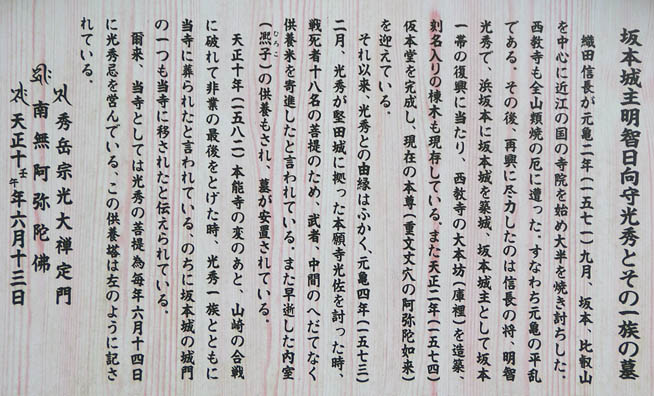 坂本城主明智日向守光秀とその一族の墓
織田信長が元亀二年(一五七一)九月、坂本、比叡山
を中心に近江の国の寺院を始め大半を焼き討ちした。
西教寺も全山類焼の厄に遭った。すなわち元亀の平乱
である。その後、再興に尽力したのは信長の将、明智
光秀で、浜坂本に坂本城を築城、坂本城主として坂本
一帯の復興に当たり、西教寺の大本坊(庫裡)を造築、
刻名入りの棟木も現存している。また天正二年(一五七四)
仮本堂を完成し、現在の本尊(重文丈六の阿弥陀如来)
を迎えている。
それ以来、光秀との由縁はふかく、元亀四年(一五七三)
二月、光秀が堅田城に拠った本願寺光佐を討った時、
戦死者十八名の菩提のため、武者、中間のへだてなく
供養米を寄進したと言われている。また早逝した内室
(熈子)の供養もされ、墓が安置されている。
むろこ
天正十年(一五八二)本能寺の変のあと、山崎の合戦
に破れて非業の最後をとげた時、光秀一族とともに
当寺に葬られたと言われている。のちに坂本城の城門
の一つも当寺に移されたと伝えられている。
爾来、当寺としては光秀の菩提為毎年六月十四日
に光秀忌を営んでいる、この供養塔は左のように記さ
れている。
秀岳宗光大禅定門
南無阿弥陀佛
天正十壬午年六月十三日